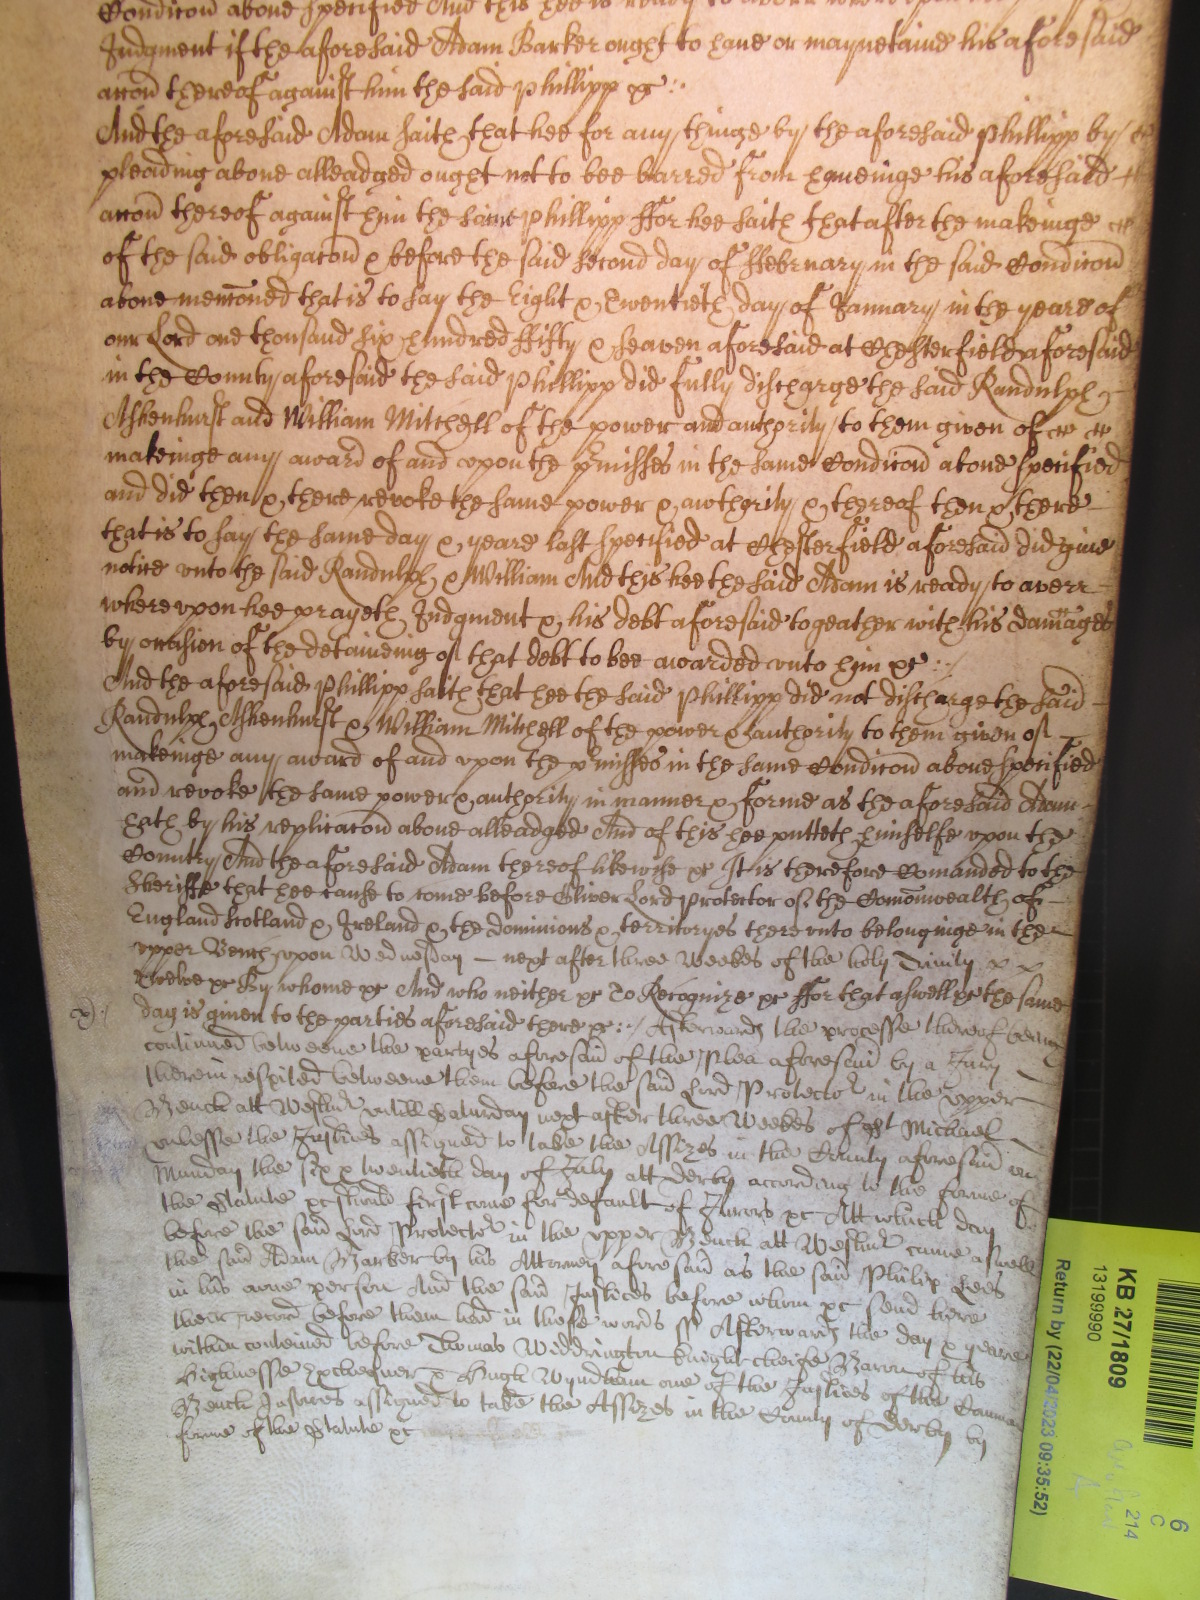 Condicon above specified And this hee is ready to averr
Judgment if the aforesaid Adam Barker ought to have or mayneteine his aforesaid
accon thereof against him the said Phillipp &c
And the aforesaid Adam saith that hee for any thinge by the aforesaid Phillipp by
pleading above alleadged ought not to bee barred from haveinge his aforesaid
accon thereof against him the same Phillipp ffor hee saith that after the makeinge
of the said obligacon & before the said second day of ffebruary in the said Condicon
above menconed that is to say the Eight & Twentieth day of January in the yeare of
our Lord one thousand six hundred ffifty & seaven aforesaid at Chesterfield aforesaid
in the County aforesaid the said Phillipp did fully discharge the said Randulph
Ashenhurst and William Mitchell of the power and authority to them given of
makeinge any award of and vpon the pmisses in the same Condicon above specified
and did then & there revoke the same power & authority & thereof then & there
that is to say the same day & yeare last specified at Chesterfield aforesaid did give
notice vnto the said Randulph & William And this hee the said Adam is ready to averr
wherevpon hee prayeth Judgment & his debt aforesaid togeather with his damages
by occasion of the detaineing of that debt to bee awarded vnto him &c
And the aforesaid Phillipp saith that hee the said Phillipp did not discharge the said
Randulph Ashenhurst & William Mitchell of the power & authority to them given of
makeinge any award of and vpon the pmisses in the same Condicon above specified
and revoke the same power & authority in manner & forme as the aforesaid Adam
hath by his replicacon above alleadged And of this hee putteth himselfe vpon the
Country And the aforesaid Adam thereof likewise &c It is therefore Comanded to the
Sheriffe that hee cause to come before Oliver Lord Protector of the Comonwealth of
England Scotland & Ireland & the dominions & territoryes therevnto belonginge in the
vpper Bench vpon Wednesday next after three Weekes of the holy Trinity
Twelve &c By whome &c And who neither &c To Recognize &c ffor that aswell &c the same
day is given to the parties aforesaid there &c Afterwards the processe thereof being
continued betweene the partyes aforesaid of the Plea aforesaid by a Jury
therein respited betweene them before the said Lord Protector in the vpper
Bench att Westmr vntill Saturday next after three Weekes of St Michael
vnlesse the Justices assigned to take the Assizes in the County aforesaid on
Munday the six & twentieth day of July att Derby according to the forme of
the Statute &c should first come for default of Jurors &c Att which day
before the said Lord Protector in the vpper Bench att Westmr came aswell
the said Adam Barker by his Attorney aforesaid as the said Philip Lees
in his owne person And the said Justices before whom &c send here
their record before them had in these words ss Afterwards the day & yeare
within conteined before Thomas Widdrington knight cheife Baron of his
Highnesse Exchequer & Hugh Wyndham one of the Justices of the Comon
Bench Justices assigned to take the Assizes in the County of Derby by
forme of the Statute &c
KB 27/1809
13199990
Return by (22/04/2023 09:35:52)
6
C
214